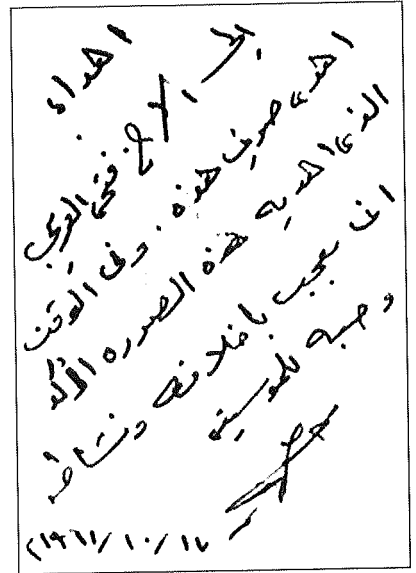 اهداء.
إلى الاخ فتحي العريبي
اهدي صورتي هذه. وفي الوقت
الذي اهديه هذه الصوره اؤكد
انى معجب باخلاقه ونشاطه
وحبه للموسيقى
١٩٦١/١٠/١٧م